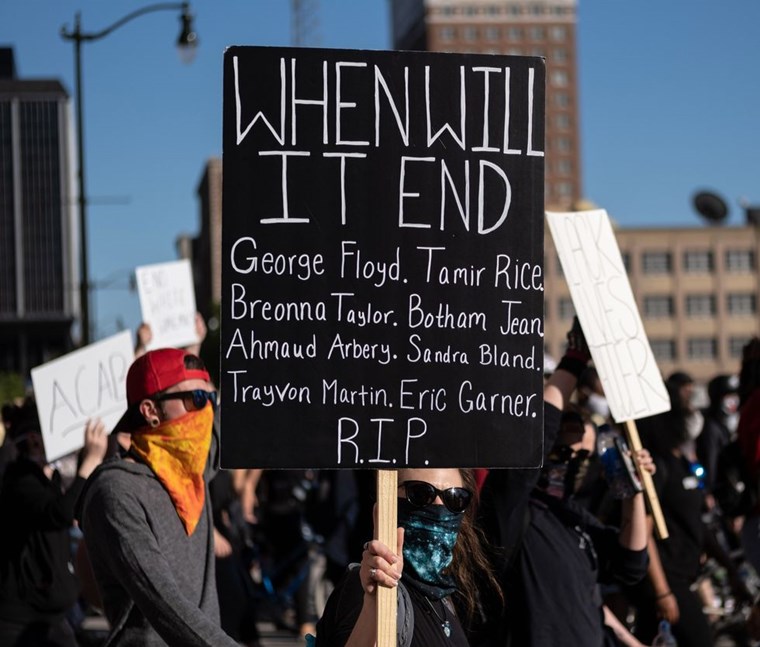 WHEN WILL
IT END
George Floyd. Tamir Rice
Breonna Taylor. Botham Jean
Ahmaud Arbery. Sandra Bland.
Trayvon Martin. Eric Garner.
R.I.P.
ACAB